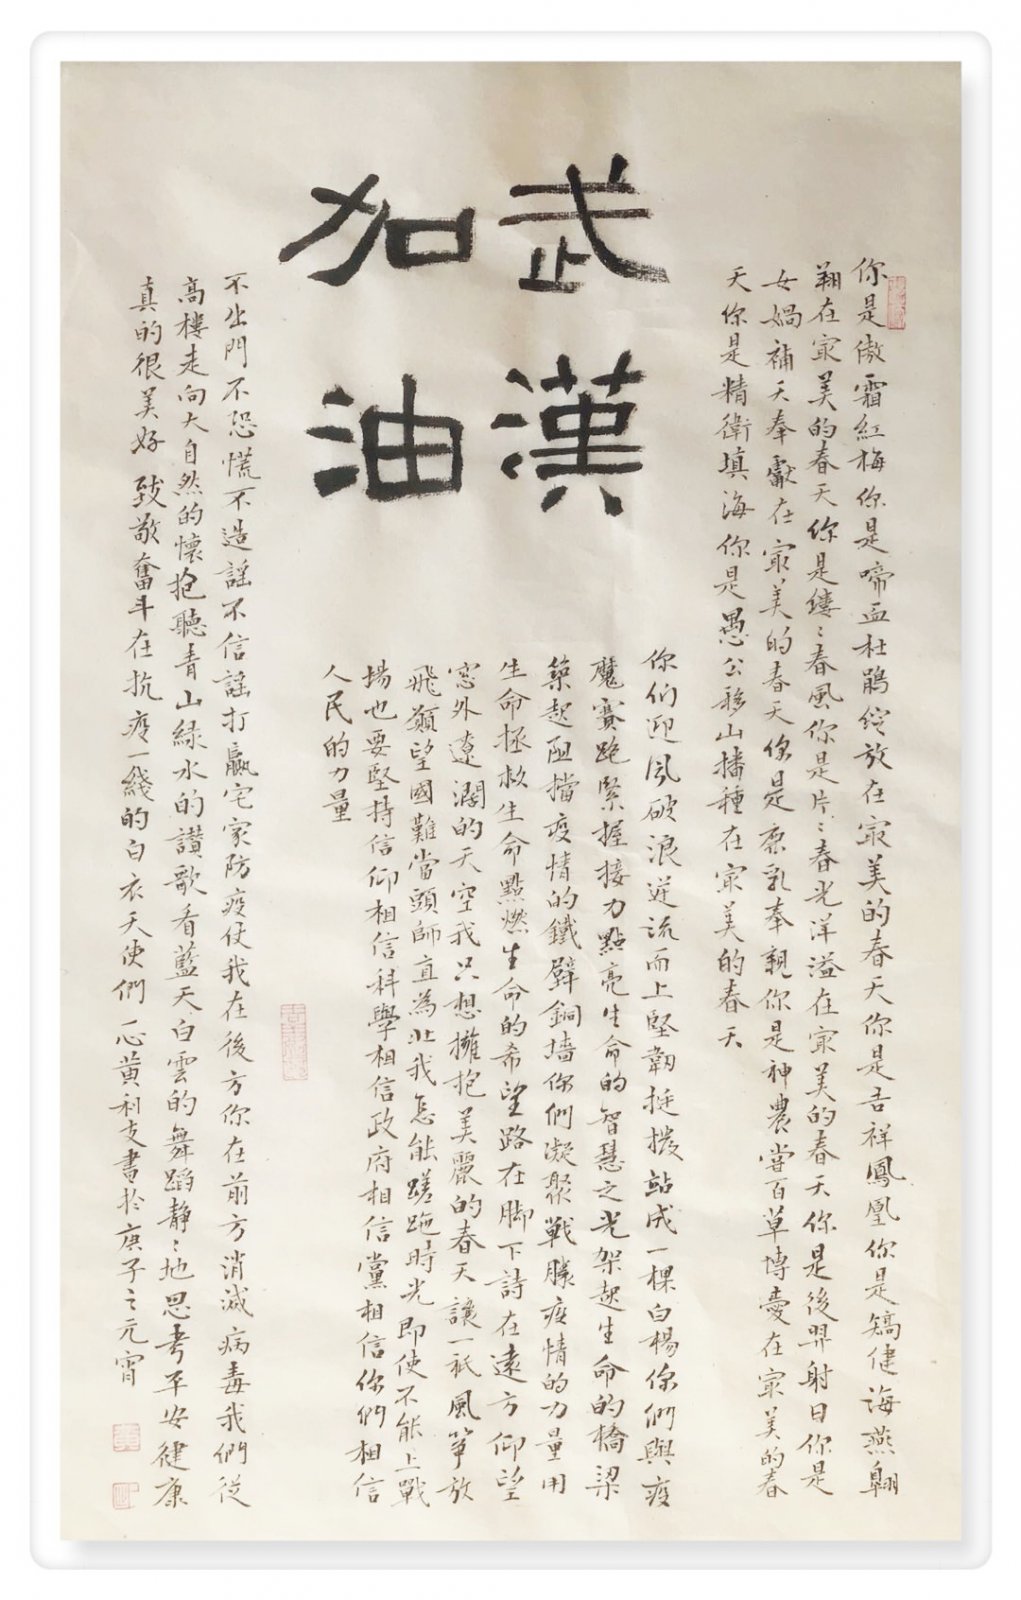 武漢
加油
你是傲霜紅梅你是啼血杜鵑綻放在寂美的春天你是吉祥鳳凰你是矯健海燕翱
翔在寂美的春天你是縷〻春風你是片〻春光洋溢在寂美的春天你是後羿射日你是
女媧補天奉獻在寂美的春天你是鹿乳奉親你是神農嘗百草博愛在寂美的春
天你是精衛填海你是愚公移山播種在寂美的春天
你们迎风破浪逆流而上堅韌挺拔站成一棵白楊你們與疫
魔賽跑緊握接力點亮生命的智慧之光架起生命的橋梁
築起阻擋疫情的鐵壁銅墙你們凝聚戰勝疫情的力量用
生命拯救生命點燃生命的希望路在脚下詩在遠方仰望
窓外遼濶的天空我只想擁抱美麗的春天讓一紙風箏放
飛願望國難當頭師直為壯我怎能蹉跎時光即使不能上戰
場也要堅持信仰相信科學相信政府相信黨相信你們相信
人民的力量
不出門不恐慌不造謠不信謠打贏宅家防疫仗我在後方你在前方消滅病毒我們從
高樓走向大自然的懷抱聽青山綠水的讚歌看藍天白雲的舞蹈靜〻地思考平安健康
真的很美好致敬奮斗在抗疫一綫的白衣天使們 黄利支書於庚子之元宵